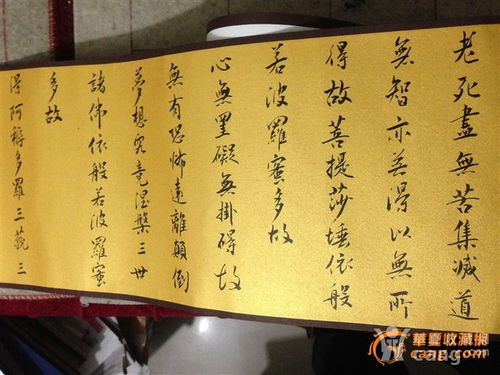 老死盡無苦集滅道
無智亦無得以無所
得故菩提莎埵依般
若波羅蜜多故
心無罣礙無掛碍故
無有恐怖遠離顛倒
夢想究竟涅槃三世
諸佛依般若波羅蜜
多故
得阿耨多羅三藐三
華夏收藏網
cang.com